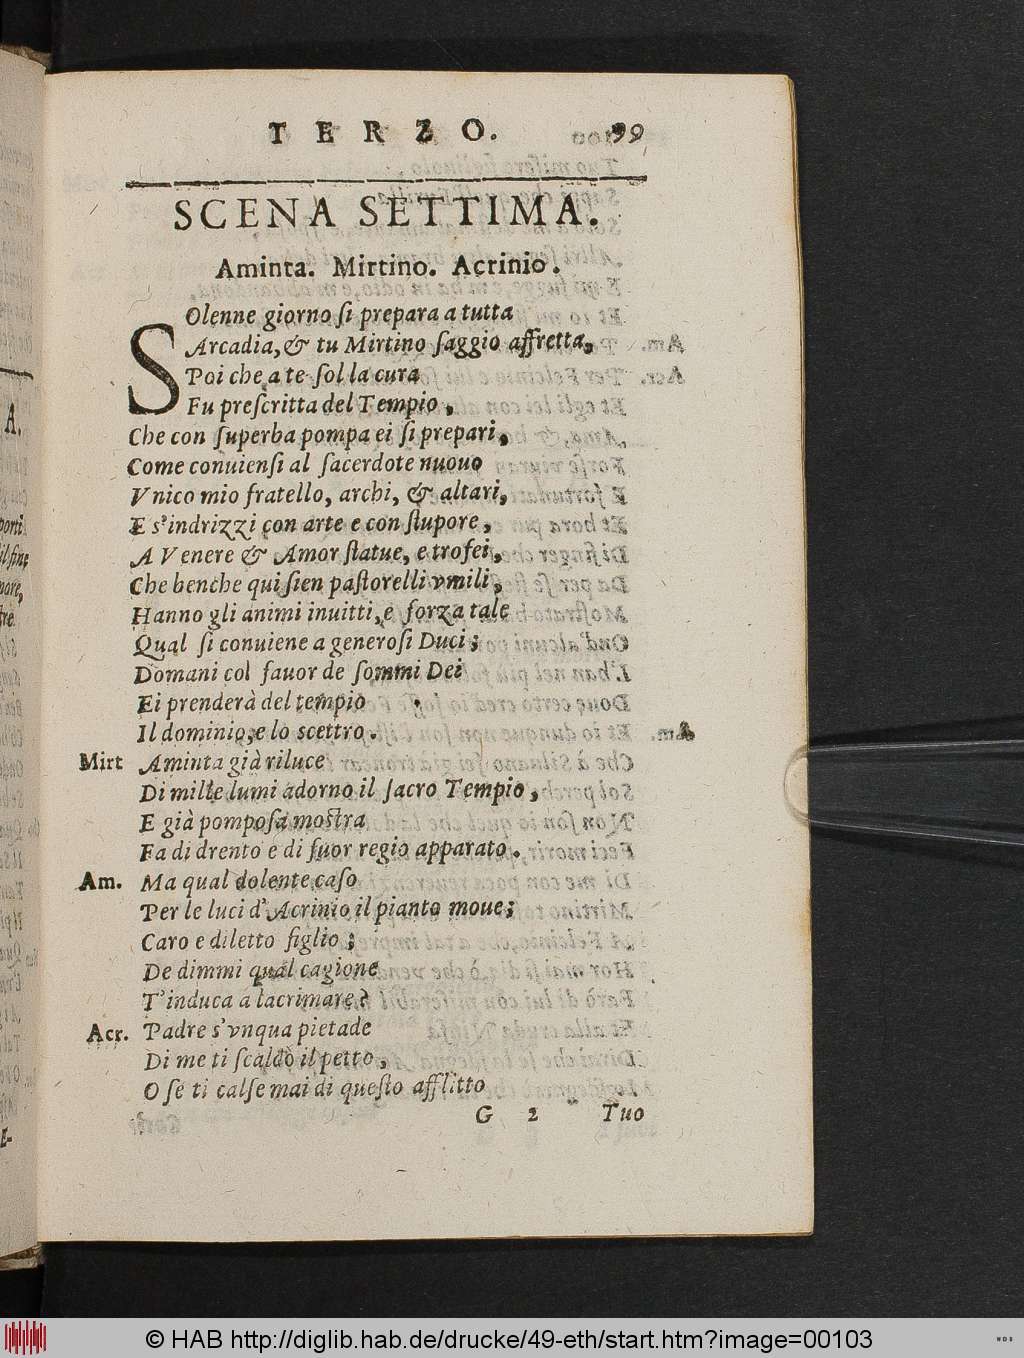 TERZO. 99
SCENA SETTIMA.
Aminta. Mirtino. Acrinio.
SOlenne giorno ſi prepara a tutta
Arcadia, & tu Mirtino ſaggio affretta,
Poi che a te ſol la cura
Fu preſcritta del Tempio,
Che con ſuperba pompa ei ſi prepari,
Come conuienſi al ſacerdote nuouo
Vnico mio fratello, archi, & altari,
E s'indrizzi con arte e con ſtupore,
A Venere & Amor ſtatue, e trofei,
Che benche qui ſien paſtorelli vmili,
Hanno gli animi inuitti, e forza tale
Qual ſi conuiene a generoſi Duci;
Domani col fauor de ſommi Dei
Ei prenderà del tempio
Il dominio, e lo scettro.
Mirt Aminta già riluce
Di mille lumi adorno il ſacro Tempio,
E già pompoſa moſtra
Fa di drento e di fuor regio apparato.
Am. Ma qual dolente caſo
Per le luci d'Acrinio il pianto moue;
Caro e diletto figlio;
De dimmi qual cagione
T'induca a lacrimare?
Acr. Padre s'vnqua pietade
Di me ti ſcaldò il petto,
O ſe ti calſe mai di queſto afflitto
G 2 Tuo
© HAB http://diglib.hab.de/drucke/49-eth/start.htm?image=00103